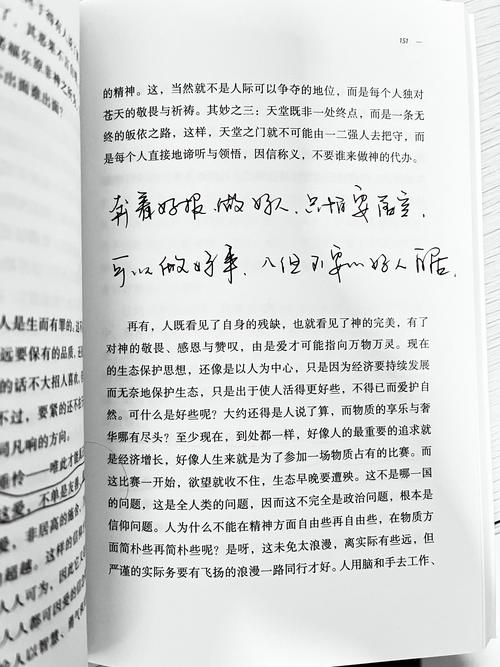 151
的精神。这，当然就不是人际可以争夺的地位，而是每个人独对
苍天的敬畏与祈祷。其妙之三：天堂既非一处终点，而是一条无
终的皈依之路，这样，天堂之门就不可能由一二强人去把守，而
是每个人直接地谛听与领悟，因信称义，不要谁来做神的代办。
奔着好报做好人，只怕要落空，
可以做好事，但不要以好人自居。
再有，人既看见了自身的残缺，也就看见了神的完美，有了
对神的敬畏、感恩与赞叹，由是爱才可能指向万物万灵。现在
的生态保护思想，还像是以人为中心，只是因为经济要持续发展
而无奈地保护生态，只是出于使人活得更好些，不得已而爱护自
然。可什么是好些呢？大约还得是人说了算，而物质的享乐与奢
华哪有尽头？至少现在，到处都一样，好像人的最重要的追求就
是经济增长，好像人生来就是为了参加一场物质占有的比赛。而
这比赛一开始，欲望就收不住，生态早晚要遭殃。这不是哪一国
的问题，这是全人类的问题，因而这不完全是政治问题，根本是
信仰问题。人为什么不能在精神方面自由些再自由些，在物质方
面简朴些再简朴些呢？是呀，这未免太浪漫，离实际有些远，但
严谨的实际务要有飞扬的浪漫一路同行才好。人用脑和手去工作、